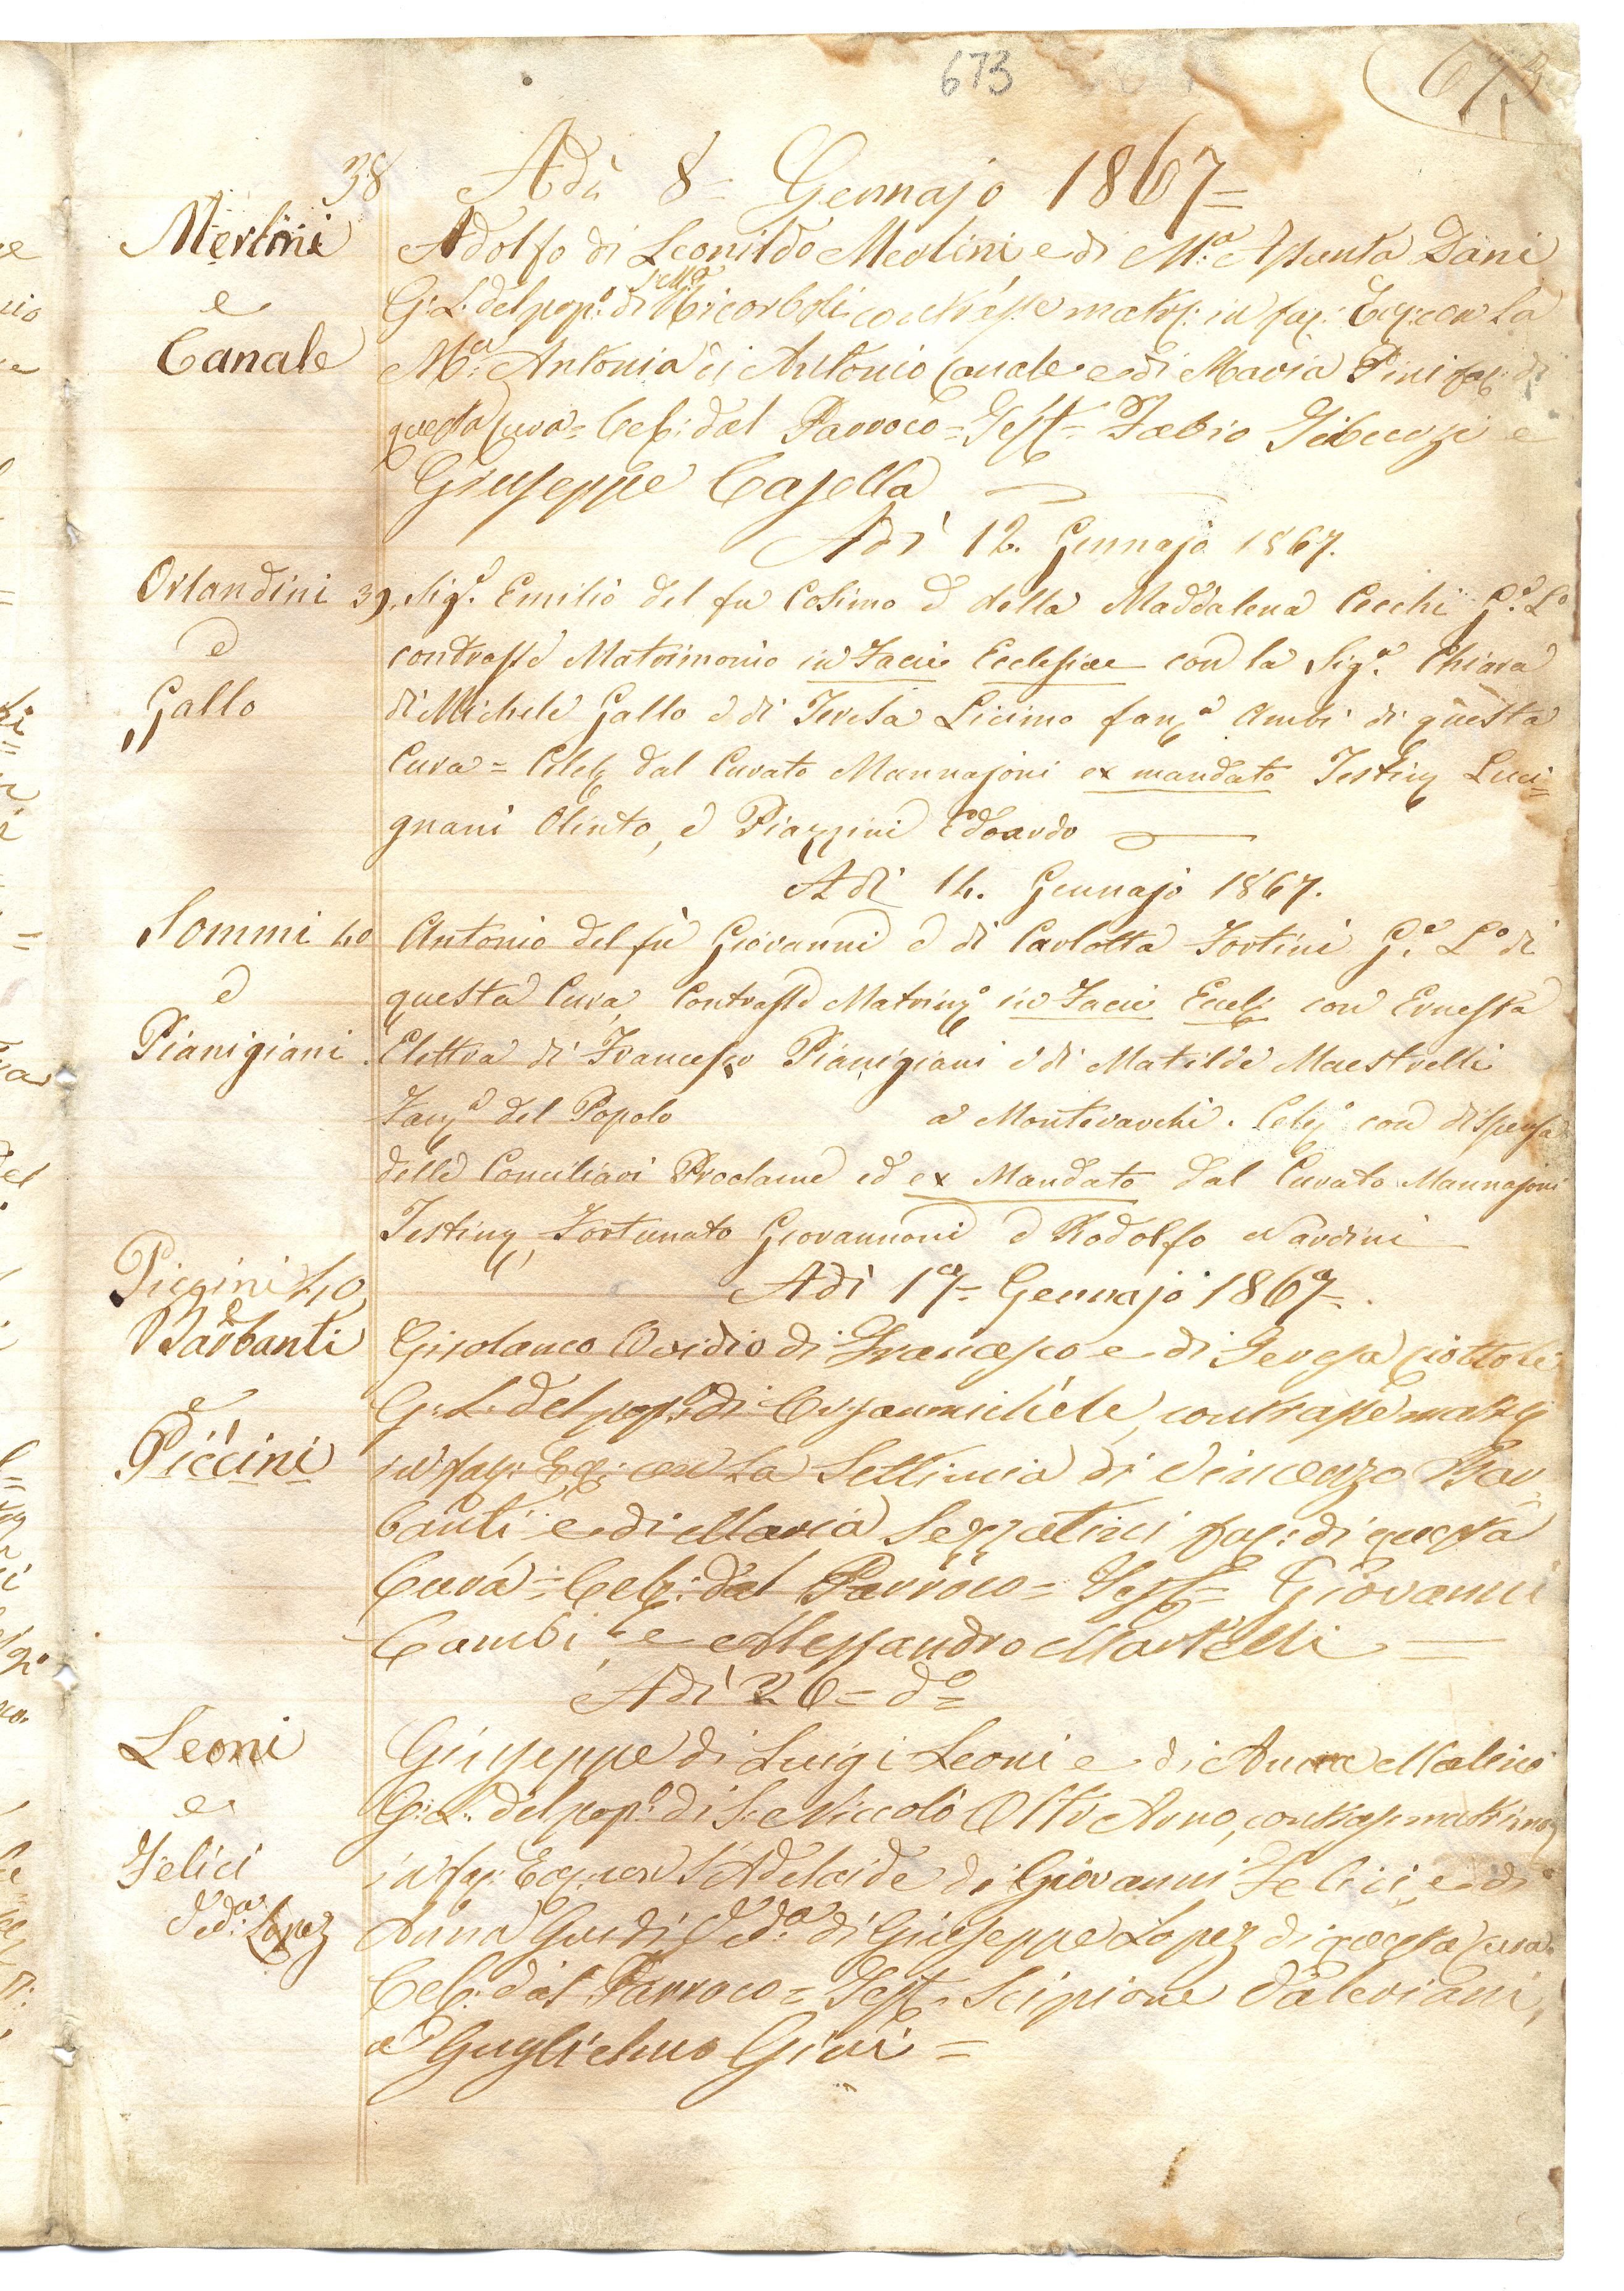 673
673
38 Adì 8= Gennajo 1867=
Merlini
e
Canale
Adolfo di Leonildo Merlini e di M.a Assunta Dani
G: L: del pop.o di Ricorboli contrasse matr: in fac: Ecc: con la
M.a Antonia di Antonio Canale e di Maria Pini fac: di
questa Cura= Celb: dal Parroco= Test= Fabio e
Giuseppe Casella
Adì 12. Gennajo 1867.
Orlandini 39.
e
Gallo
Sig.e Emilio del fu Cosimo e della Maddalena Cecchi G.e L.o
contrasse Matrimonio in Facie Ecclesiae con la Sig.a Chiara
di Michele Gallo e di Teresa Licimo fan.a Ambi di questa
Cura= Celeb dal Curato Mannajoni ex mandato Testim Luci=
gnani Olinto, e Piazzini Edoardo
Adì 14. Gennajo 1867.
Sommi 40
e
Pianigiani
Antonio del fù Giovanni e di Carlotta Fortini G.e L.o di
questa Cura, Contrasse Matrim.o in Facie Eccle con Ernesta
Elettra di Francesco Pianigiani e di Matilde Maestrelli
Fan.a del Popolo a Montevarchi. Celeb con dispensa
delle Conciliari Proclame ed ex Mandato dal Curato Mannajoni
Testim Fortunato Giovannoni e Rodolfo Nardini
Piccini 40
e
Barbanti
e
Piccini
Adì 17= Gennajo 1867=
Girolamo Ovidio di Francesco e di Teresa Ciottoli
G: L: del pop.o di Orsanmichele, contrasse matr
in fac: Ecc: con la Settimia di Vincenzo Bar
banti e di Maria fac: di questa
Cura= Celb: dal Parroco= Test= Giovanni
Cambi, e Alessandro Martelli =
Adì 20= d.o=
Leoni
e
Felici
Ved.a Lopez
Giuseppe di Luigi Leoni e di Anna
G: L: del pop.o di S. Niccolò Oltr'Arno, contrasse matrimo
in fac: Ecc: con l'Adelaide di Giovanni Felici e di
Anna Guidi Ved.a di Giuseppe Lopez di questa Cura
Celb: dal Parroco= Test. Scipione Valeriani,
e Guglielmo Gini=